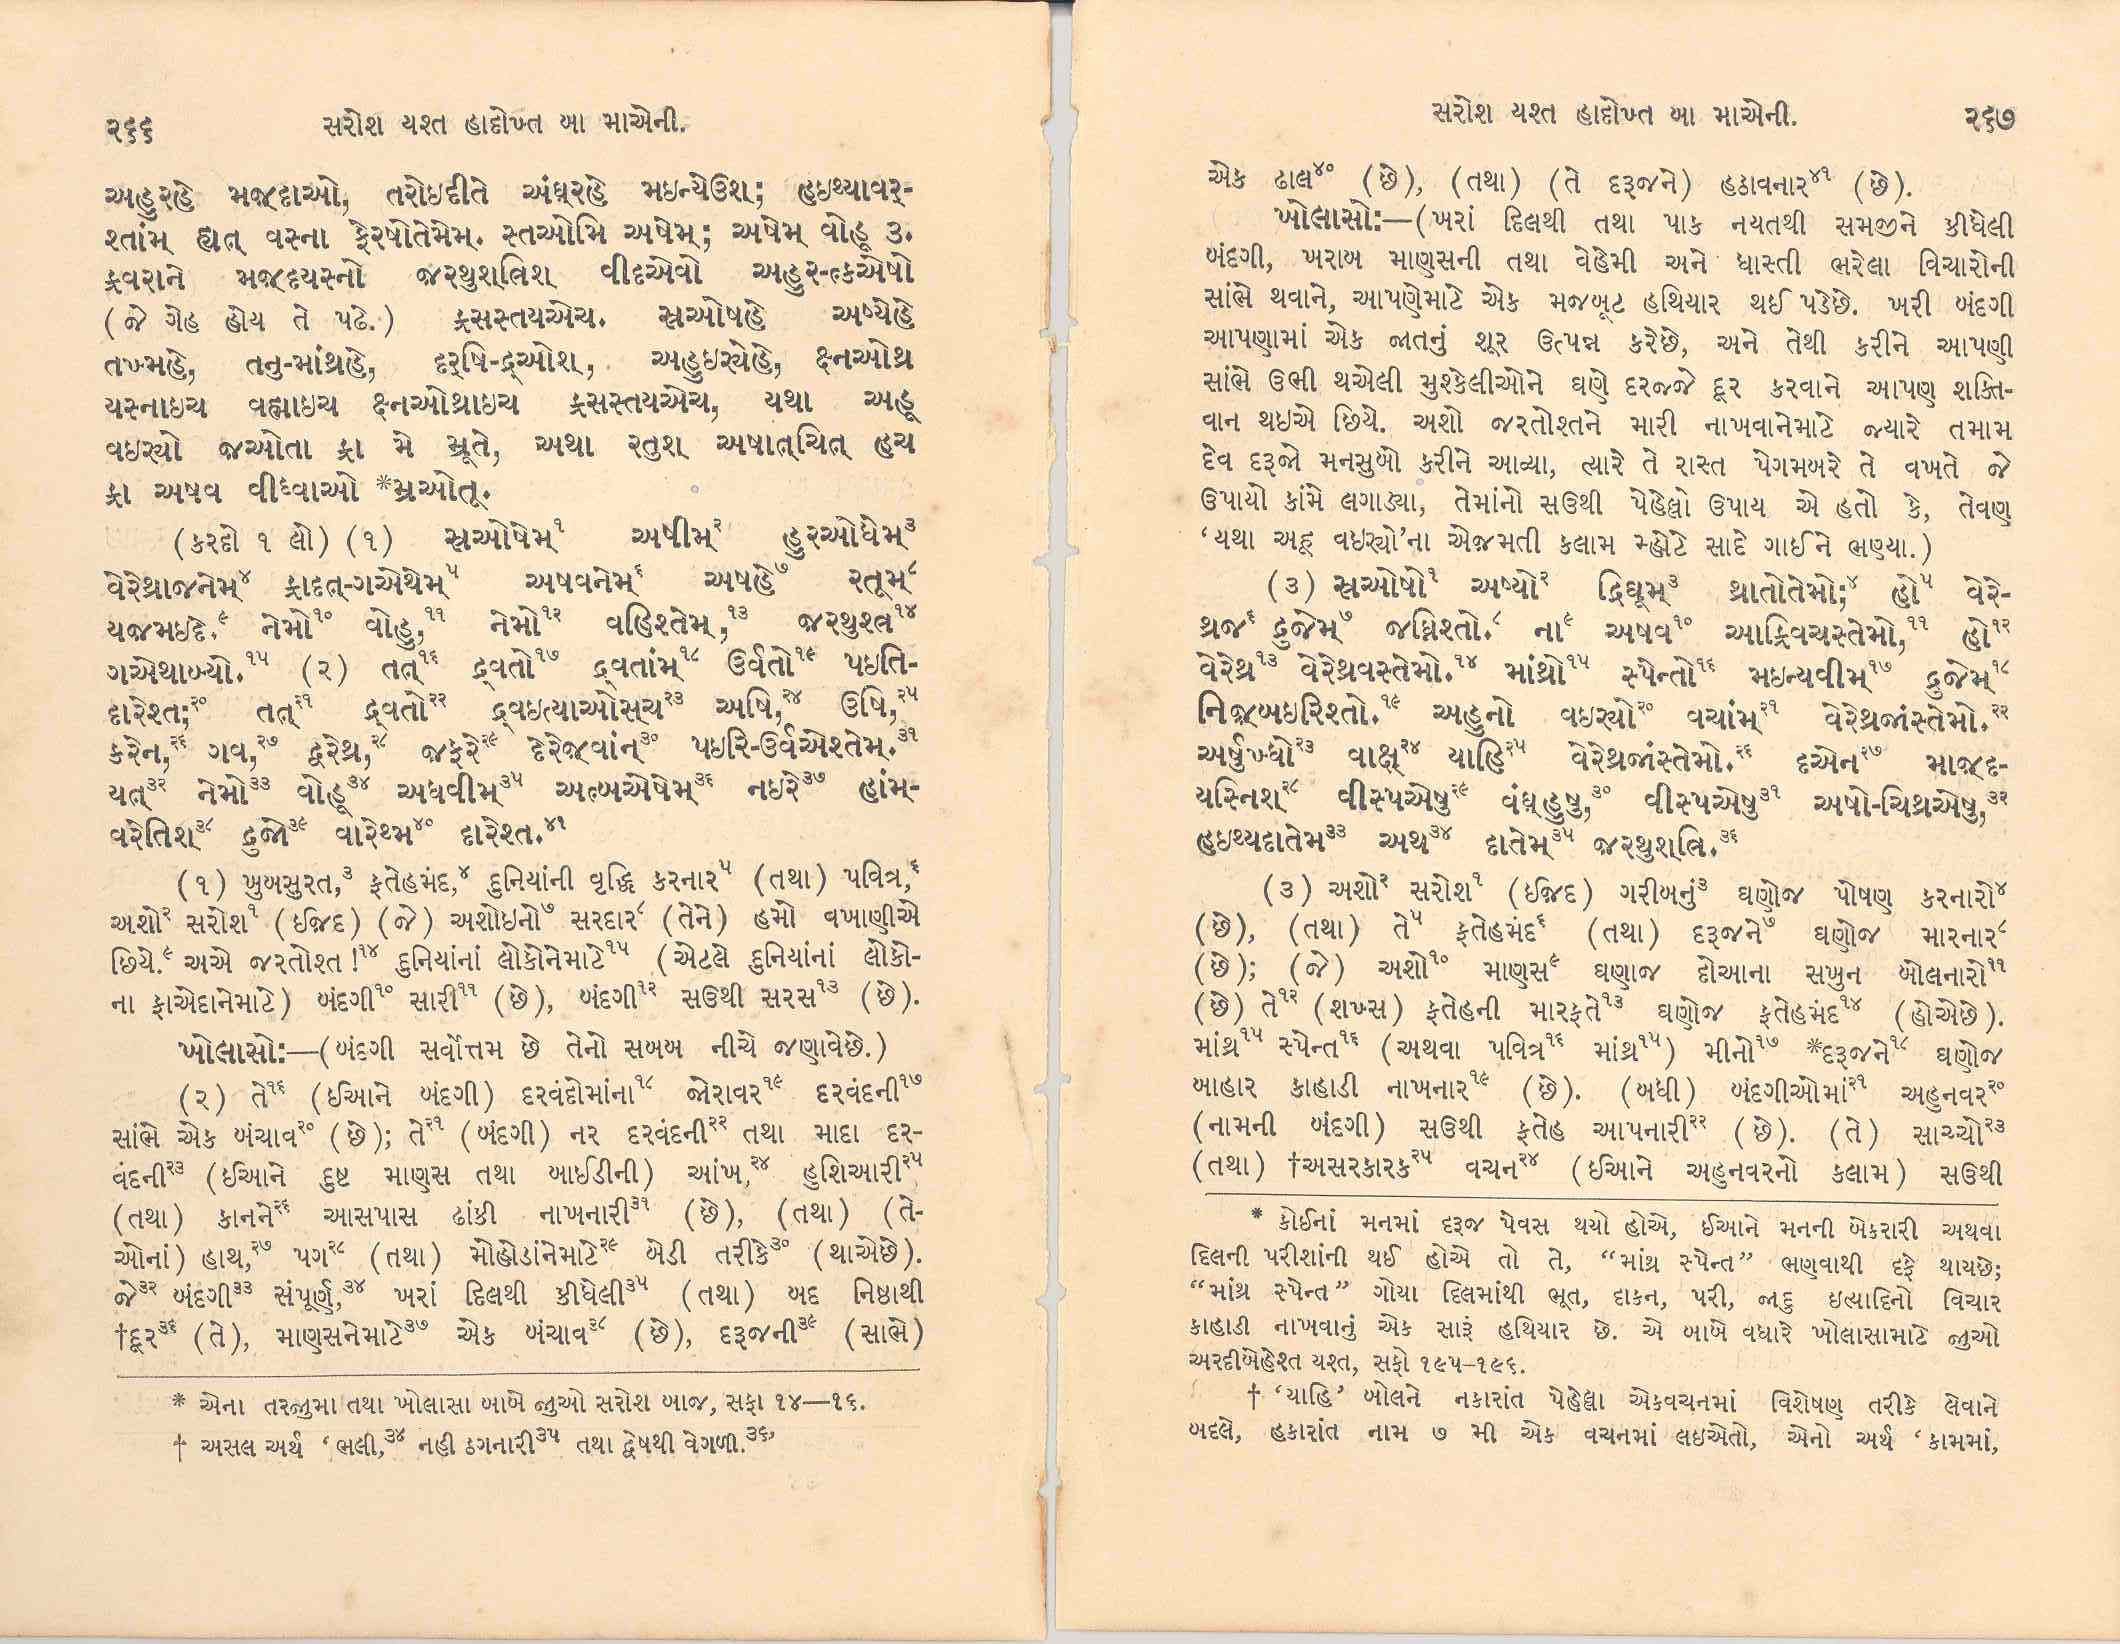 ૨૬૬ સરોશ યશ્ત હાદોખ્ત બા માએની.
અહુરહે મજ઼્દાઓ, તરોઇદીતે અંઘ્રહે મઇન્યેઉશ્; હઇથ્યાવર્-
શ્તાંમ્ હ્યત્ વસ્ના ફેરષોતેમેમ્. સ્તઓમિ અષેમ્; અષેમ્ વોહૂ ૩.
ફ્રવરાને મજ઼્દયસ્નો જ઼રથુશ્ત્રિશ્ વીદએવો અહુર-ત્કએષો
(જે ગેહ હોય તે પઢે.) ફ્રસસ્તયએચ. સ્રઓષહે અષ્યેહે
તખ્મહે, તનુ-માંથ્રહે, દર્ષિ-દ્રઓશ્, અહુઇર્યેહે, ક્ષ્નઓથ્ર
યસ્નાઇચ વહ્માઇચ ક્ષ્નઓથ્રાઇચ ફ્રસસ્તયએચ, યથા અહૂ
વઇર્યો જ઼ઓતા ફ્રા મે મ્રૂતે, અથા રતુશ્ અષાત્ચિત્ હચ
ફ્રા અષવ વીધ્વાઓ *મ્રઓતૂ.
(કરદો ૧ લો) (૧) સ્રઓષેમ્૧ અષીમ્૨ હુરઓધેમ્૩
વેરેથ્રાજનેમ્૪ ફ્રાદત્-ગએથેમ્૫ અષવનેમ્૬ અષહે૭ રતૂમ્૮
યજ઼મઇદે.૯ નેમો૧૦ વોહુ,૧૧ નેમો૧૨ વહિશ્તેમ્,૧૩ જ઼રથુશ્ત્ર૧૪
ગએથાબ્યો.૧૫ (૨) તત્૧૬ દ્ર્વતો૧૭ દ્ર્વતાંમ્૧૮ ઉર્વતો૧૯ પઇતિ-
દારેશ્ત;૨૦ તત્૨૧ દ્ર્વતો૨૨ દ્ર્વઇત્યાઓસ્ચ૨૩ અષિ,૨૪ ઉષિ,૨૫
કરેન,૨૬ ગવ,૨૭ દ્વરેથ્ર,૨૮ જ઼ફરે૨૯ દેરેજ઼્વાંન્૩૦ પઇરિ-ઉર્વએશ્તેમ્.૩૧
યત્૩૨ નેમો૩૩ વોહૂ૩૪ અધવીમ્૩૫ અત્બએષેમ્૩૬ નઇરે૩૭ હાંમ્-
વરેતિશ્૩૮ દ્રુજો૩૯ વારેથ્મ૪૦ દારેશ્ત.૪૧
(૧) ખુબસુરત,૩ ફતેહમંદ,૪ દુનિયાંની વૃદ્ધિ કરનાર૫ (તથા) પવિત્ર,૬
અશો૨ સરોશ૧ (ઇજ઼દ) (જે) અશોઇનો૭ સરદાર૮ (તેને) હમો વખાણીએ
છિયે.૯ અએ જરતોશ્ત !૧૪ દુનિયાંનાં લોકોનેમાટે૧૫ (એટલે દુનિયાંનાં લોકો-
ના ફાએદાનેમાટે) બંદગી૧૦ સારી૧૧ (છે), બંદગી૧૨ સઉથી સરસ૧૩ (છે).
ખોલાસોઃ—(બંદગી સર્વોત્તમ છે તેનો સબબ નીચે જણાવેછે.)
(૨) તે૧૬ (ઈઆને બંદગી) દરવંદોમાંના૧૮ જોરાવર૧૯ દરવંદની૧૭
સાંભે એક બંચાવ૨૦ (છે); તે૨૧ (બંદગી) નર દરવંદની૨૨ તથા માદા દર-
વંદની૨૩ (ઈઆને દુષ્ટ માણસ તથા બાઈડીની) આંખ,૨૪ હુશિઆરી૨૫
(તથા) કાનને૨૬ આસપાસ ઢાંકી નાખનારી૩૧ (છે), (તથા) (તે-
ઓનાં) હાથ,૨૭ પગ૨૮ (તથા) મોહોડાંનેમાટે૨૯ બેડી તરીકે૩૦ (થાએછે).
જે૩૨ બંદગી૩૩ સંપૂર્ણ,૩૪ ખરાં દિલથી કીધેલી૩૫ (તથા) બદ નિષ્ઠાથી
†દૂર૩૬ (તે), માણસનેમાટે૩૭ એક બંચાવ૩૮ (છે), દરૂજની૩૯ (સાભે)
* એના તરજુમા તથા ખોલાસા બાબે જુઓ સરોશ બાજ, સફા ૧૪—૧૬.
† અસલ અર્થ ‘ભલી,૩૪ નહી ઠગનારી૩૫ તથા દ્વેષથી વેગળી.૩૬’
સરોશ યશ્ત હાદોખ્ત બા માએની. ૨૬૭
એક ઢાલ૪૦ (છે), (તથા) (તે દરૂજને) હઠાવનાર૪૧ (છે).
ખોલાસોઃ—(ખરાં દિલથી તથા પાક નયતથી સમજીને કીધેલી
બંદગી, ખરાબ માણસની તથા વેહેમી અને ધાસ્તી ભરેલા વિચારોની
સાંભે થવાને, આપણેમાટે એક મજબૂટ હથિયાર થઈ પડેછે. ખરી બંદગી
આપણામાં એક જાતનું શૂર ઉત્પન્ન કરેછે, અને તેથી કરીને આપણી
સાંભે ઉભી થએલી મુશ્કેલીઓને ઘણે દરજ્જે દૂર કરવાને આપણ શક્તિ-
વાન થઇએ છિયે. અશો જરતોશ્તને મારી નાખવાનેમાટે જ્યારે તમામ
દેવ દરૂજો મનસુબો કરીને આવ્યા, ત્યારે તે રાસ્ત પેગમબરે તે વખતે જે
ઉપાયો કાંમે લગાડ્યા, તેમાંનો સઉથી પેહેલ્લો ઉપાય એ હતો કે, તેવણ
‘યથા અહૂ વઇર્યો’ના એજ઼મતી કલામ મ્હોટે સાદે ગાઈને ભણ્યા.)
(૩) સ્રઓષો૧ અષ્યો૨ દ્રિઘૂમ્૩ થ્રાતોતેમો;૪ હો૫ વેરે-
થ્રજ૬ દ્રુજેમ્૭ જઘ્નિશ્તો.૮ ના૯ અષવ૧૦ આફ્રિવચસ્તેમો,૧૧ હો૧૨
વેરેથ્ર૧૩ વેરેથ્રવસ્તેમો.૧૪ માંથ્રો૧૫ સ્પેન્તો૧૬ મઇન્યવીમ્૧૭ દ્રુજેમ્૧૮
નિજ઼્બઇરિશ્તો.૧૯ અહુનો વઇર્યો૨૦ વચાંમ્૨૧ વેરેથ્રજાંસ્તેમો.૨૨
અર્ષુખ્ધો૨૩ વાક્ષ્૨૪ યાહિ૨૫ વેરેથ્રજાંસ્તેમો.૨૬ દએન૨૭ માજ઼્દ-
યસ્નિશ્૨૮ વીસ્પએષુ૨૯ વંઘ્હુષુ,૩૦ વીસ્પએષુ૩૧ અષો-ચિથ્રએષુ,૩૨
હઇથ્યદાતેમ૩૩ અથ૩૪ દાતેમ્૩૫ જ઼રથુશ્ત્રિ.૩૬
(૩) અશો૨ સરોશ૧ (ઇજ઼દ) ગરીબનું૩ ઘણોજ પોષણ કરનારો૪
(છે), (તથા) તે૫ ફતેહમંદ૬ (તથા) દરૂજને૭ ઘણોજ મારનાર૮
(છે); (જે) અશો૧૦ માણસ૯ ઘણાજ દોઆના સખુન બોલનારો૧૧
(છે) તે૧૨ (શખ્સ) ફતેહની મારફતે૧૩ ઘણોજ ફતેહમંદ૧૪ (હોએછે).
માંથ્ર૧૫ સ્પેન્ત૧૬ (અથવા પવિત્ર૧૬ માંથ્ર૧૫) મીનો૧૭ *દરૂજને૧૮ ઘણોજ
બાહાર કાહાડી નાખનાર૧૯ (છે). (બધી) બંદગીઓમાં૨૧ અહુનવર૨૦
(નામની બંદગી) સઉથી ફતેહ આપનારી૨૨ (છે). (તે) સાચ્ચો૨૩
(તથા) †અસરકારક૨૫ વચન૨૪ (ઈઆને અહુનવરનો કલામ) સઉથી
* કોઈનાં મનમાં દરૂજ પેવસ થયો હોએ, ઈઆને મનની બેકરારી અથવા
દિલની પરીશાંની થઈ હોએ તો તે, “માંથ્ર સ્પેન્ત” ભણવાથી દફે થાયછે;
“માંથ્ર સ્પેન્ત” ગોયા દિલમાંથી ભૂત, દાકન, પરી, જાદુ ઇત્યાદિનો વિચાર
કાહાડી નાખવાનું એક સારૂં હથિયાર છે. એ બાબે વધારે ખોલાસામાટે જુઓ
અરદીબેહેશ્ત યશ્ત, સફો ૧૯૫–૧૯૬.
† ‘યાહિ’ બોલને નકારાંત પેહેલ્લા એકવચનમાં વિશેષણ તરીકે લેવાને
બદલે, હકારાંત નામ ૭ મી એક વચનમાં લઇએતો, એનો અર્થ ‘કામમાં,